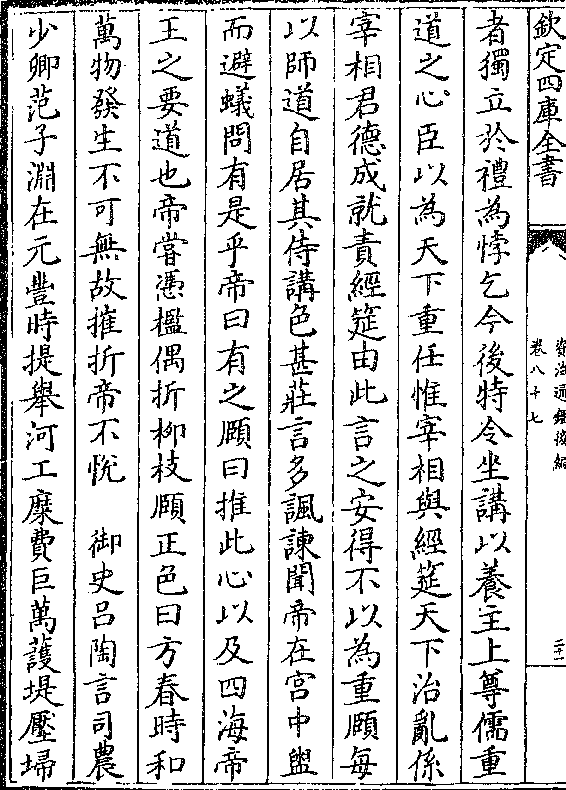 欽定四庫全書
資治通鑑後編
卷八十七
二十一
者獨立於禮為悖乞今後特令坐講以養主上尊儒重
道之心臣以為天下重任惟宰相與經筵天下治亂係
宰相君德成就責經筵由此言之安得不以為重頤每
以師道自居其侍講色甚莊言多諷諫聞帝在宮中盥
而避蟻問有是乎帝曰有之頤曰推此心以及四海帝
王之要道也帝嘗憑檻偶折柳枝頤正色曰方春時和
萬物發生不可無故摧折帝不悅　御史呂陶言司農
少卿范子淵在元豐時提舉河工糜費巨萬護堤壓埽